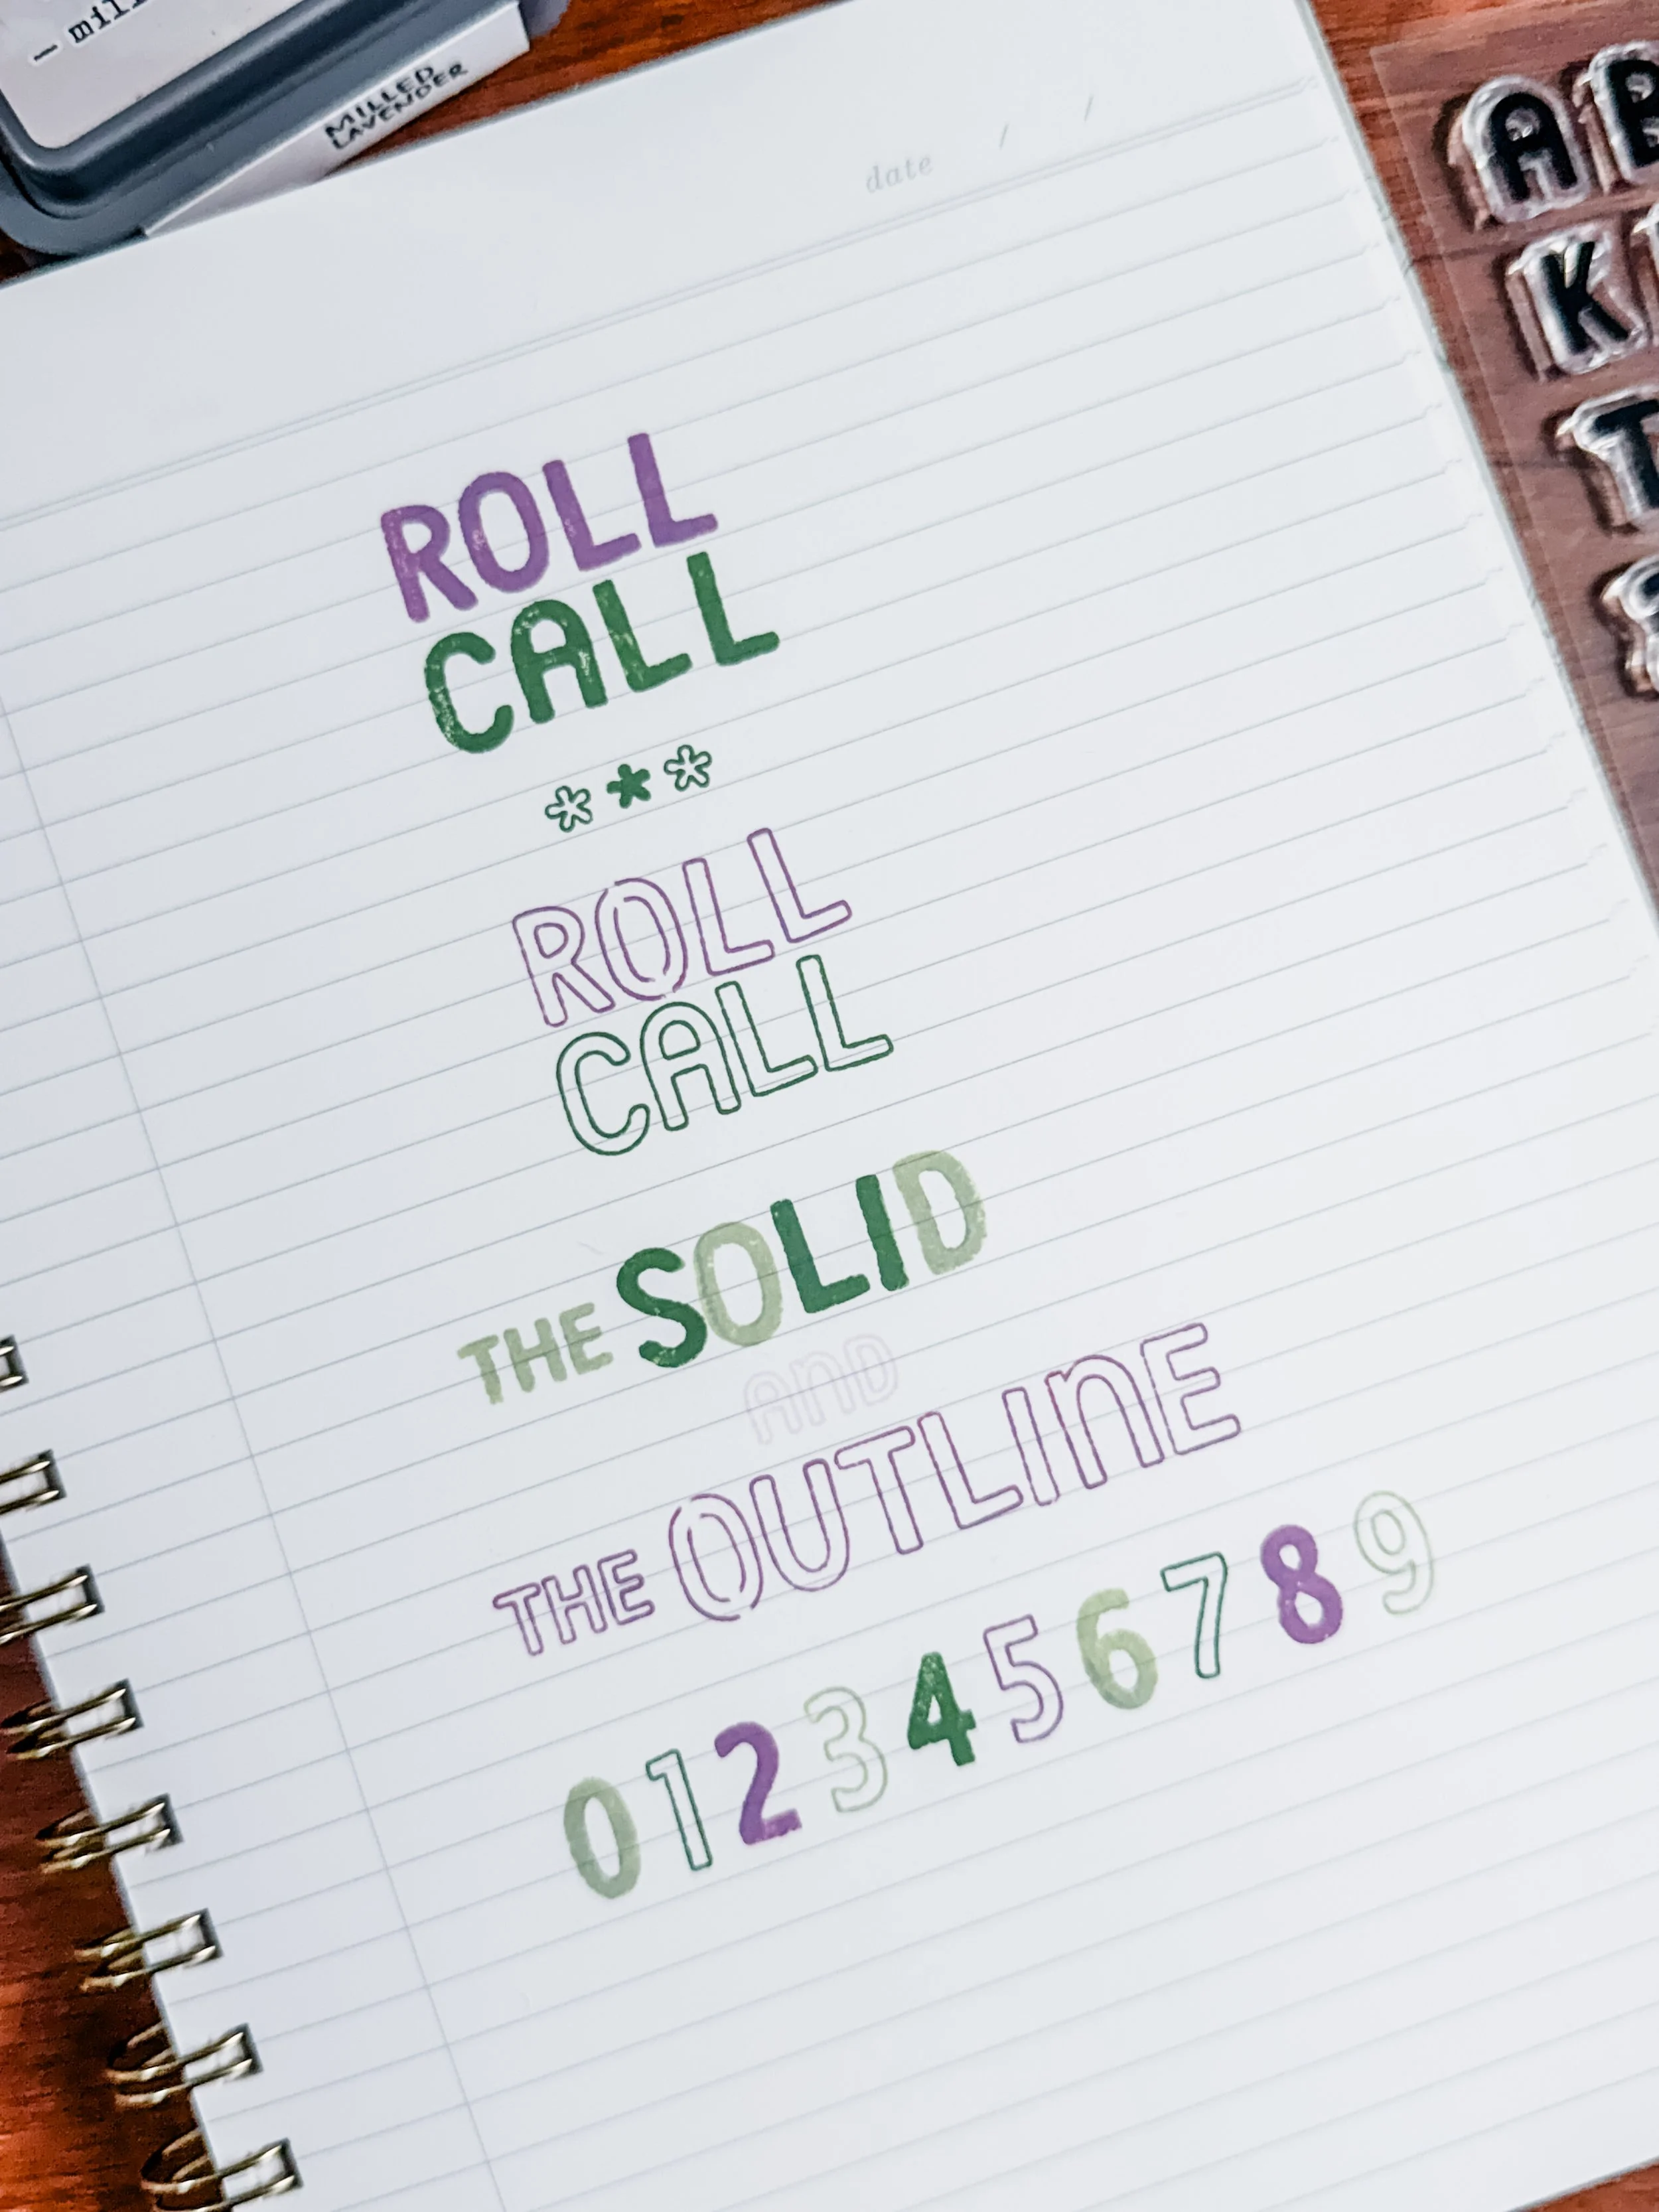 — mil
MILLED
LAVENDER
date / /
ROLL
CALL
***
ROLL
CALL
THE SOLID
AND
THE OUTLINE
0123456789
A
K
T